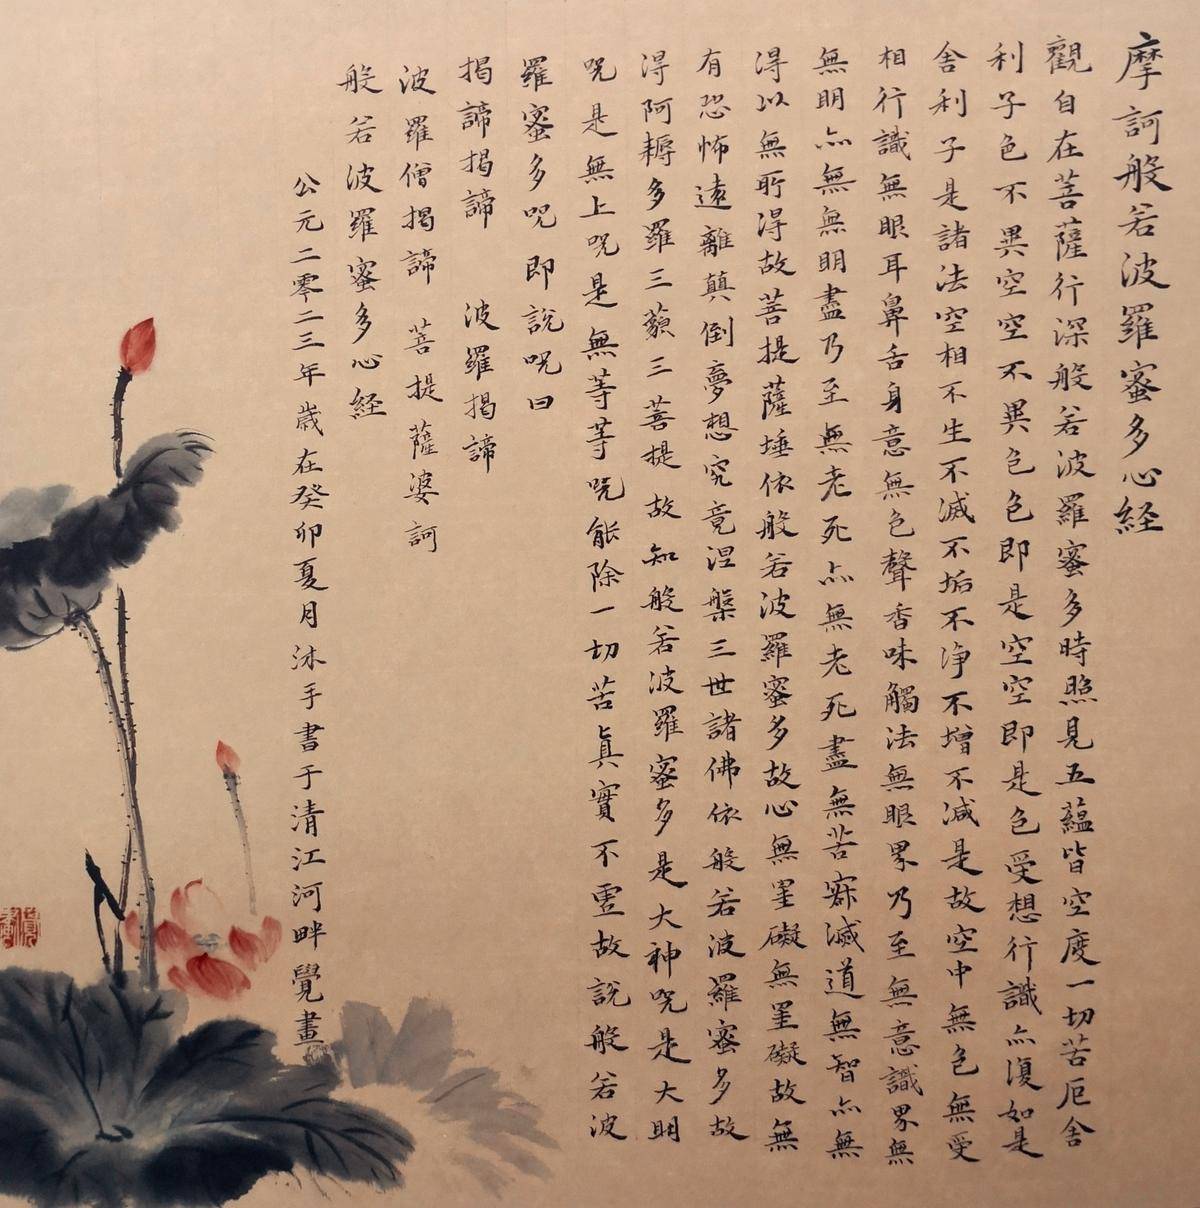 摩訶般若波羅蜜多心経
觀自在菩薩行深般若波羅蜜多時照見五蘊皆空度一切苦厄舍
利子色不異空空不異色色即是空空即是色受想行識亦復如是
舍利子是諸法空相不生不滅不垢不浄不增不減是故空中無色無受
相行識無眼耳鼻舌身意無色聲香味觸法無眼界乃至無意識界無
無明亦無無明盡乃至無老死亦無老死盡無苦寂滅道無智亦無
得以無所得故菩提薩埵依般若波羅蜜多故心無罣礙無罣礙故無
有恐怖遠離顛倒夢想究竟涅槃三世諸佛依般若波羅蜜多故
得阿耨多羅三藐三菩提故知般若波羅蜜多是大神咒是大明
咒是無上咒是無等等咒能除一切苦真實不虛故說般若波
羅蜜多咒即說咒曰
揭諦揭諦 波羅揭諦
波羅僧揭諦 菩提薩婆訶
般若波羅蜜多心経
公元二零二三年歲在癸卯夏月沐手書于清江河畔覺畫